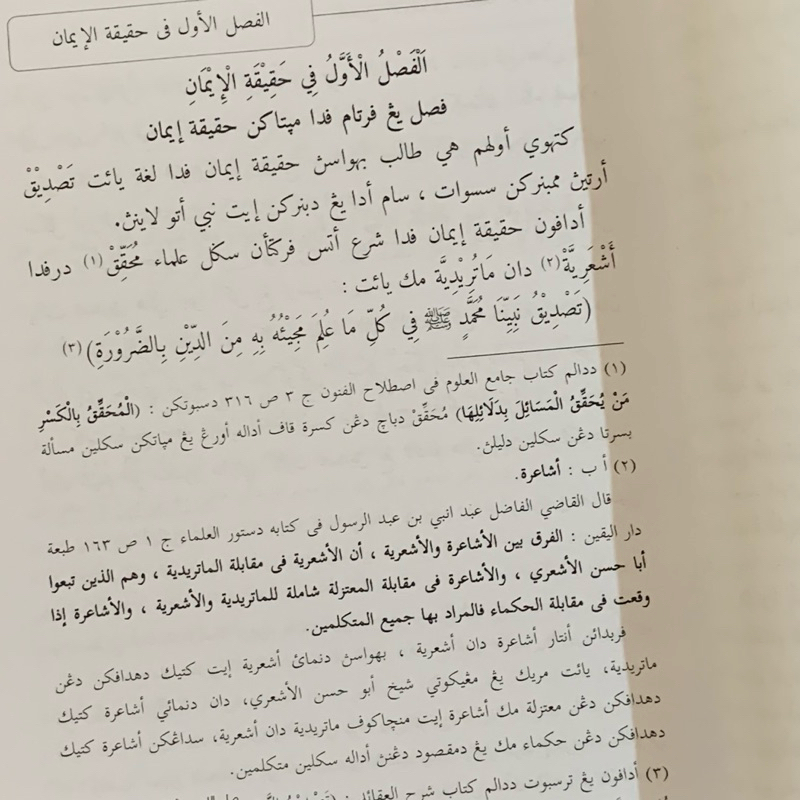 الفصل الأول فى حقيقة الإيمان
اَلْفَصْلُ الْأَوَّلُ فِي حَقِيْقَةِ الْإِيْمَانِ
فصل يڠ فرتام فدا مپتاكن حقيقة إيمان
كتهوي أولهم هي طالب بهواسڽ حقيقة إيمان فدا لغة يائت تَصْدِيْقْ
أرتيڽ ممبنركن سسوات ، سام أدا يڠ دبنركن إيت نبي أتو لاينڽ.
أدافون حقيقة إيمان فدا شرع أتس فركتأن سكل علماء مُحَقِّقْ (١) درفدا
أَشْعَرِيَّةْ (٢) دان مَاتُرِيْدِيَّة مك يائت :
(تَصْدِيْقُ نَبِيِّنَا مُحَمَّدٍ ﷺ فِي كُلِّ مَا عُلِمَ مَجِيْئُهُ بِهِ مِنَ الدِّيْنِ بِالضَّرُوْرَةِ) (٣)
(١) ددالم كتاب جامع العلوم فى اصطلاح الفنون ج ٣ ص ٣١٦ دسبوتكن : (الْمُحَقِّقُ بِالْكَسْرِ
مَنْ يُحَقِّقُ الْمَسَائِلَ بِدَلَائِلِهَا) مُحَقِّقْ دباچ دڠن كسرة قاف أداله أورڠ يڠ مپاتكن سكلين مسألة
بسرتا دڠن سكلين دليلڽ.
(٢) أ ب : أشاعرة.
قال القاضي الفاضل عبد انبي بن عبد الرسول فى كتابه دستور العلماء ج ١ ص ١٦٣ طبعة
دار اليقين : الفرق بين الأشاعرة والأشعرية ، أن الأشعرية فى مقابلة الماتريدية ، وهم الذين تبعوا
أبا حسن الأشعري ، والأشاعرة فى مقابلة المعتزلة شاملة للماتريدية والأشعرية ، والأشاعرة إذا
وقعت فى مقابلة الحكماء فالمراد بها جميع المتكلمين.
فربدائن أنتار أشاعرة دان أشعرية ، بهواسڽ دنمائ أشعرية إيت كتيك دهدافكن دڠن
ماتريدية، يائت مريك يڠ مڠيكوتي شيخ أبو حسن الأشعري، دان دنمائي أشاعرة كتيك
دهدافكن دڠن معتزلة مك أشاعرة إيت منچاكوف ماتريدية دان أشعرية، سداڠكن أشاعرة كتيك
دهدافكن دڠن حكماء مك يڠ دمقصود دڠنڽ أداله سكلين متكلمين.
(٣) أدافون يڠ ترسبوت ددالم كتاب شرح العقائد :